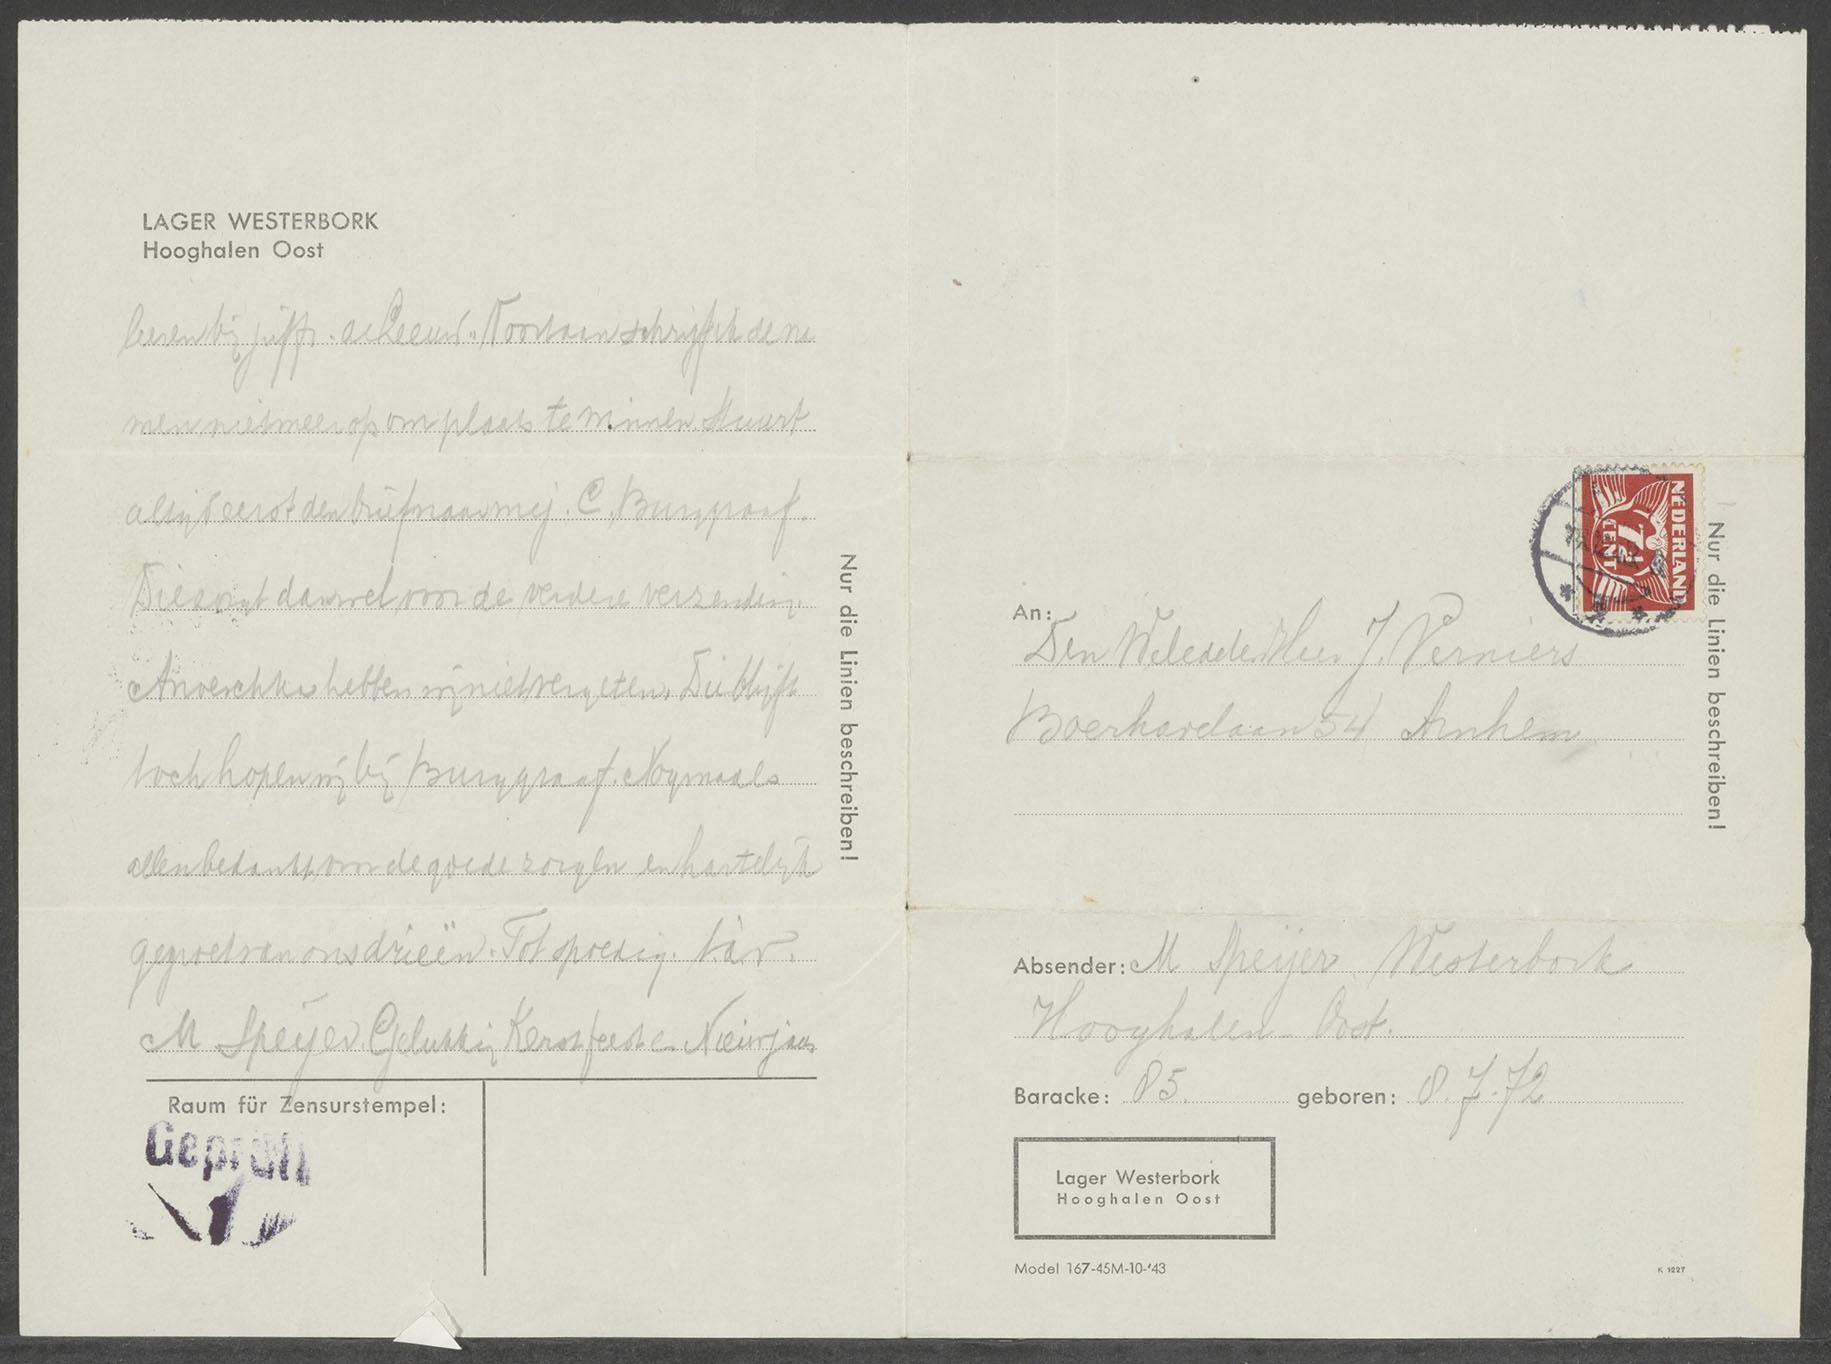 LAGER WESTERBORK
Hooghalen Oost
leeren bij juffr. de Leeuw. Voortaan schrijf ik de na
men niet meer op om plaats te winnen. Stuurt
altijd eerst den brief naar mej. C. Burggraaf.
Die zorgt dan wel voor de verdere verzending.
hebben wij niet vergeten. Die blijft
toch hopen wij bij Burggraaf. Nogmaals
allen bedankt voor de goede zorgen en hartelijk
gegroet van ons drieën. Tot spoedig.
M Speyer. Gelukkig Kerstfeest en Nieuwjaar
Nur die Linien beschreiben!
Raum für Zensurstempel:
Geprüft
NEDERLAND
7½
CENT
Nur die Linien beschreiben!
An:
Den Weledelen Heer J. Verniers
Boerhavelaan 54 Arnhem
Absender: M. Speijer Westerbork
Hooghalen - Oost.
Baracke: 85. geboren: 8.7.72
Lager Westerbork
Hooghalen Oost
Model 167-45M-10-'43
K 1227